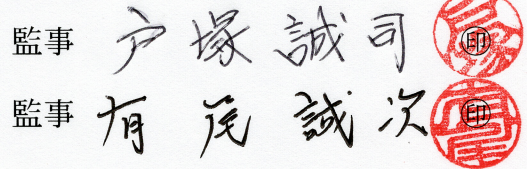 監事 戸塚誠司 ㊞
監事 有尾誠次 ㊞